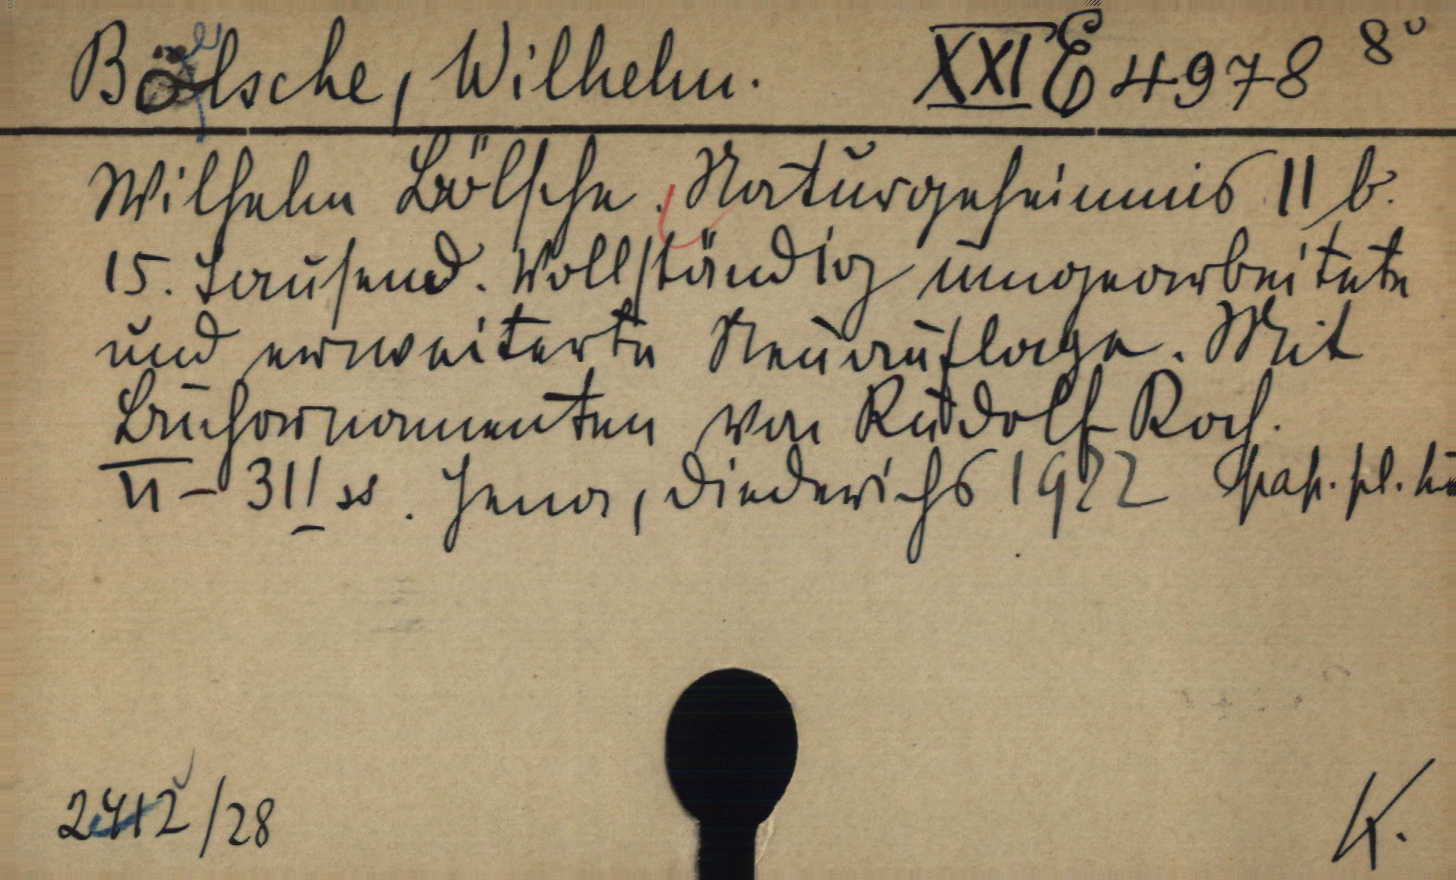 Bölsche, Wilhelm. XXI E 4978 8°
Wilhelm Bölsche. Naturgeheimnis 11 b.
15. Tausend. Vollständig umgearbeitete
und erweiterte Neuauflage. Mit
Buchornamenten von Rudolf Koch.
VI - 311 ss. Jena, Diederichs 1922 pap. pl.
2412/28
K.